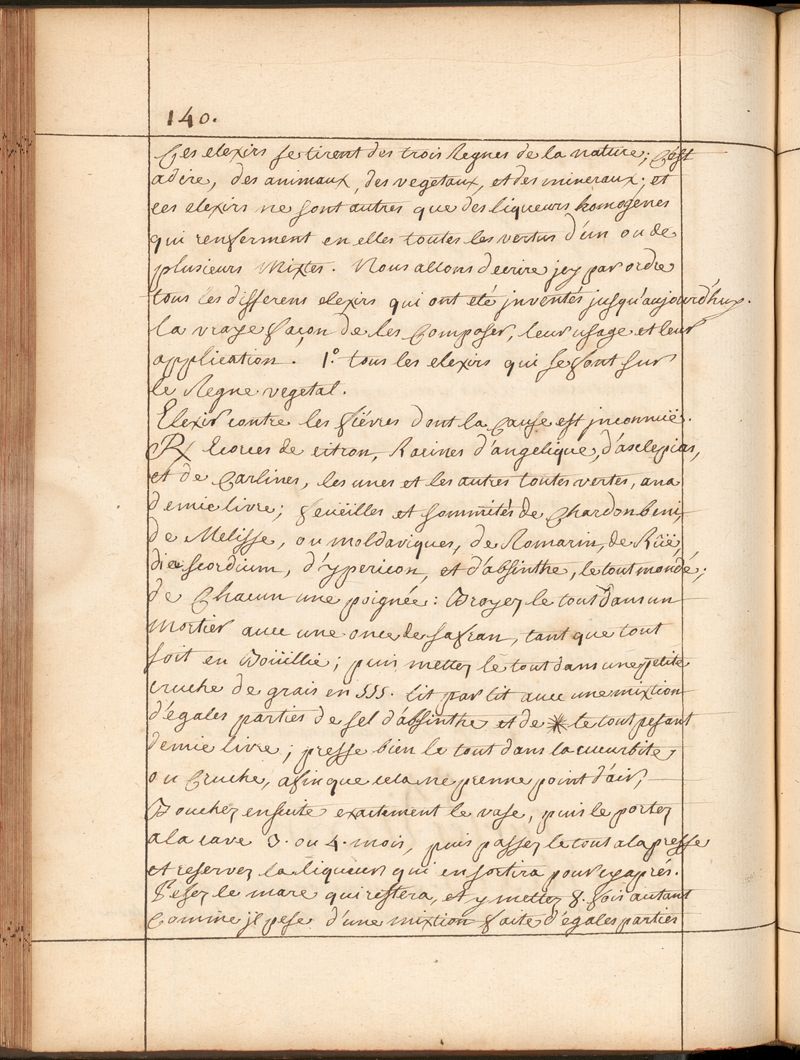 140.
Ces elexirs se tirent des trois Regnes de la nature; C'est
adire, des animaux, des vegetaux, et des mineraux; et
ces elexirs ne sont autres que des liqueurs homogenes
qui renferment en elles toutes les vertus d'un ou de
plusieurs Mixtes. Nous allons decrire jcy par ordre
tous les differens elexirs qui ont eté jnventés jusqu'aujourd'huy.
la vraye façon de les Composer, leur usage et leur
application. 1.° tous les elexirs qui se font sur
le Regne vegetal.
Elexir contre les fiévres dont la Cause est jnconnuë.
℞ Ecorces de citron, Racines d'angelique, d'asclepias,
et de Carlines, les unes et les autres toutes vertes, ana
demie livre; feüeilles et sommités de Chardon beni,
de Melisse, ou moldaviques, de Romarin, de Rüë,
de scordium, d'ypericon, et d'absinthe, le tout mondé;
de Chacun une poignée: Broyez le tout dans un
Mortier avec une once de safran, tant que tout
soit en Boüillie; puis mettez le tout dans une petite
cruche de grais en SSS. lit par lit avec une mixtion
d'égales parties de sel d'absinthe et de ✳ le tout pesant
demie livre; presse bien le tout dans la cucurbite,
ou Cruche, afin que cela ne prenne point d'air,
Bouchez ensuite exactement le vase, puis le portez
a la cave 3. ou 4. mois, puis passez le tout a la presse
et reservez la liqueur qui en sortira pour cy aprés.
Pesez le marc qui restera, et y mettez 8. fois autant
Comme jl pese d'une mixtion faite d'égales parties